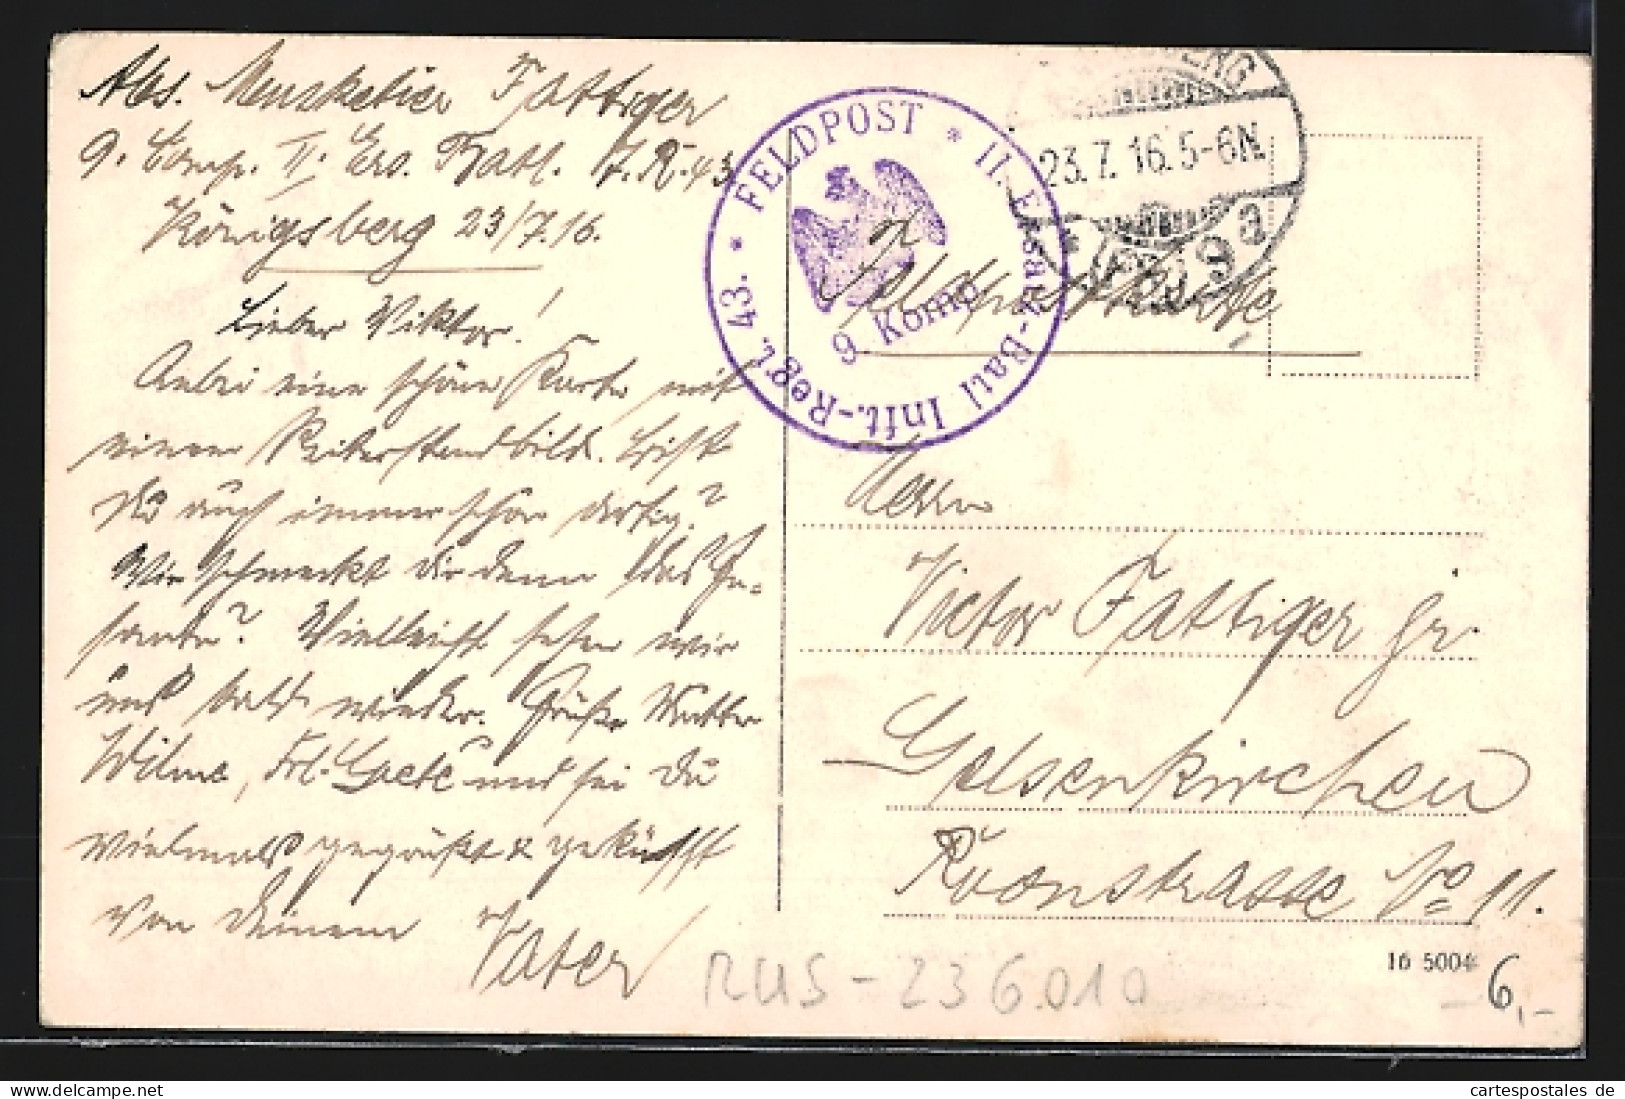 Abs. Musketier Fattiger
9. Comp. II. Ers. Batl. I. R. 43
Königsberg 23/7.16.
Lieber Viktor!
Anbei eine schöne Karte mit
einem Reiterstandbild. Bist
Du auch immer schön artig?
Wie schmeckt dir denn das Ge-
? Vielleicht sehen wir
uns bald wieder. Grüße Mutter
Wilme, Frl. Grete und sei Du
vielmals gegrüßt & geküsst
von Deinem Vater
* FELDPOST * II. Ersatz-Batl Inft.-Regt. 43.
9 Komp
BERG
23.7.16.5-6N.
* (PR.) 9 a
Feldpostkarte
Herrn
Victor Fattiger jr.
Gelsenkirchen
Roonstrasse No 11.
16 5004
RUS-236.010
6,-
Delcampe.net
cartespostales de